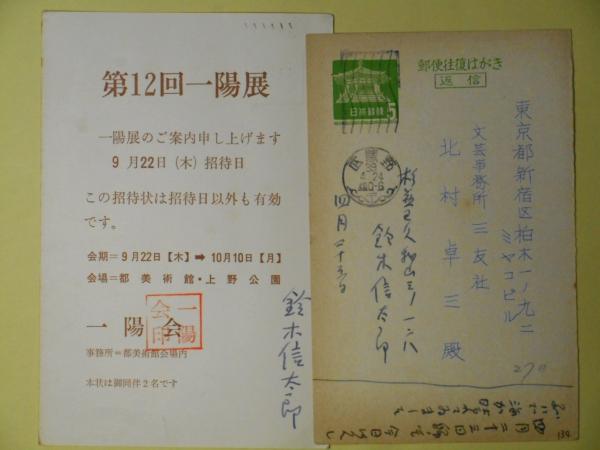 第12回一陽展
一陽展のご案内申し上げます
9月22日（木）招待日
この招待状は招待日以外も有効
です。
会期＝9月22日【木】➡10月10日【月】
会場＝都美術館・上野公園
一陽会
一陽
会印
事務所＝都美術館会場内
本状は御同伴2名です
鈴木信太郎
郵便往復はがき
返信
日本郵便
5
東京都新宿区柏木一ノ九二
ミヤコビル
文芸事務所 三友社
北村卓三殿
杉並区久我山三ノ一二八
鈴木信太郎
四月二十五日
270
134